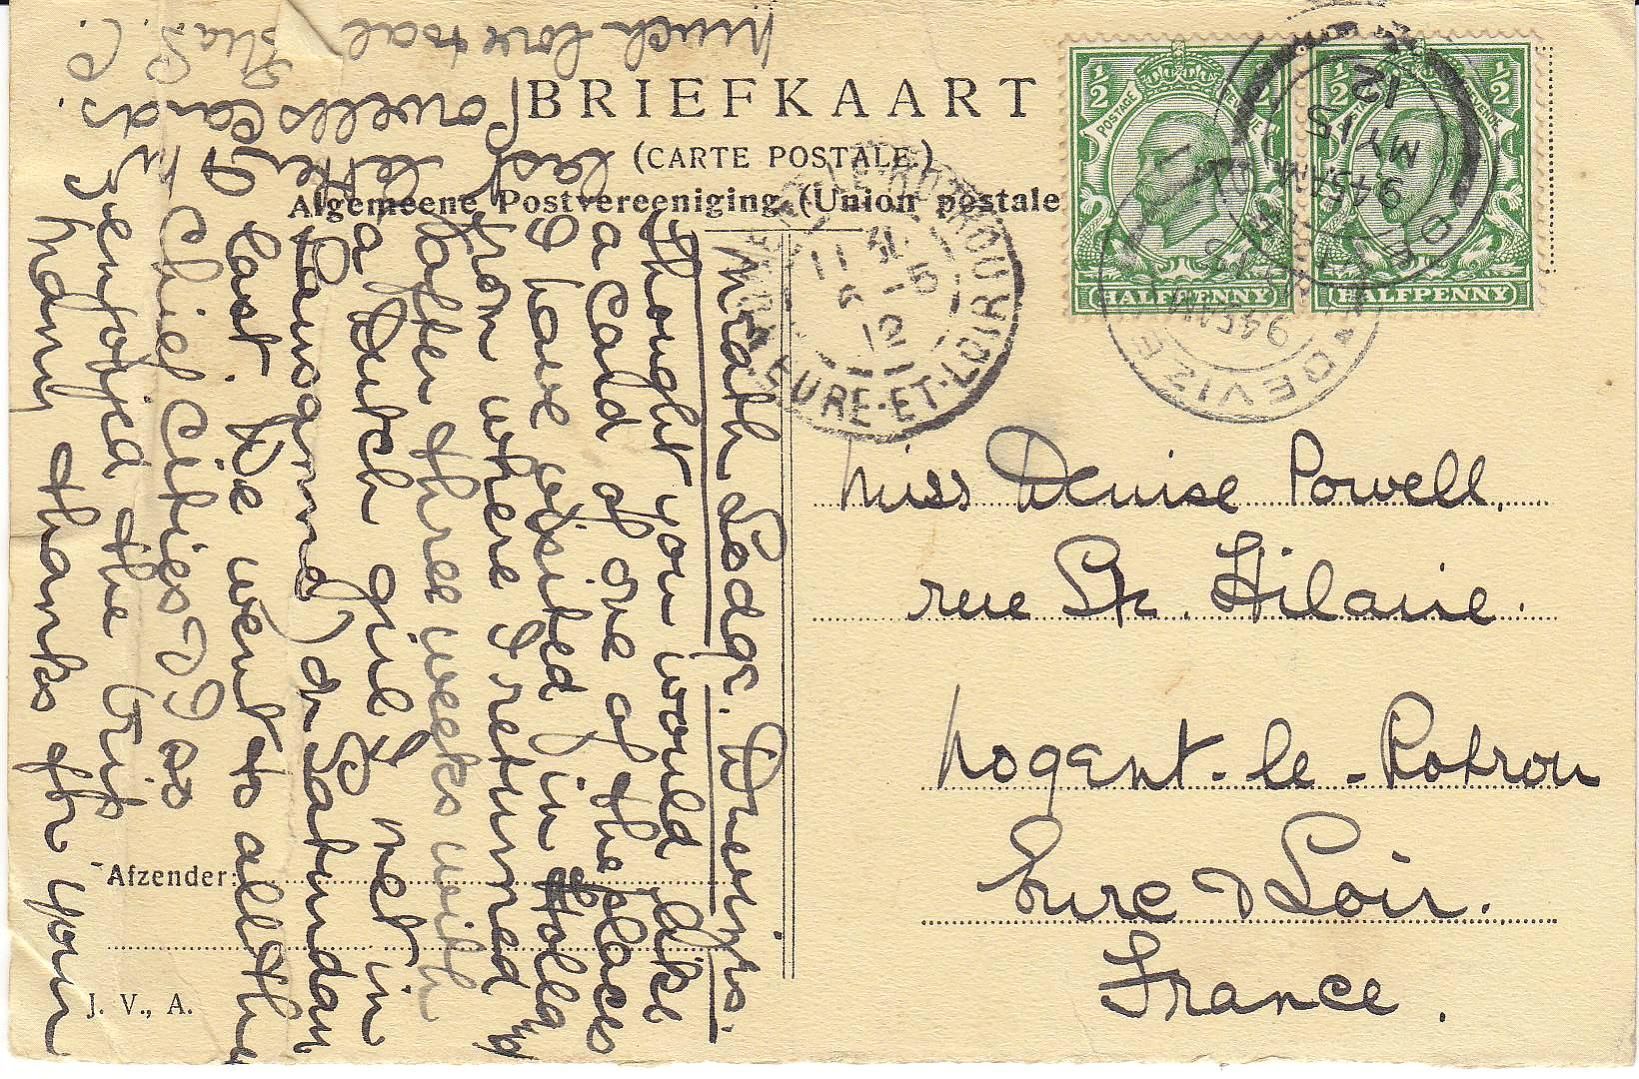 BRIEFKAART
(CARTE POSTALE.)
Algemeene Postvereeniging (Union postale
½ ½
POSTAGE REVENUE
HALFPENNY
½ ½
POSTAGE REVENUE
HALFPENNY
DEVIZES
9 45 AM
MY 15
12
DEVIZES
9 45 AM
MY 15
12
NOGENT-LE-ROTROU
11
-5
12
EURE-ET-LOIR
Miss Denise Powell,
rue St. Hilaire.
Nogent-le-Rotrou
Eure & Loir.
France.
Heath Lodge. Devizes.
thought you would like
a card of one of the places
I have visited in Holland
from where I returned
after three weeks with
a Dutch girl I met in
Lausanne) on Saturday
last. We went to all the
Chief Cities & I so
enjoyed the trip
Many thanks for your
last letter &
Powells cards.
Much love to all
Afzender:
J. V., A.